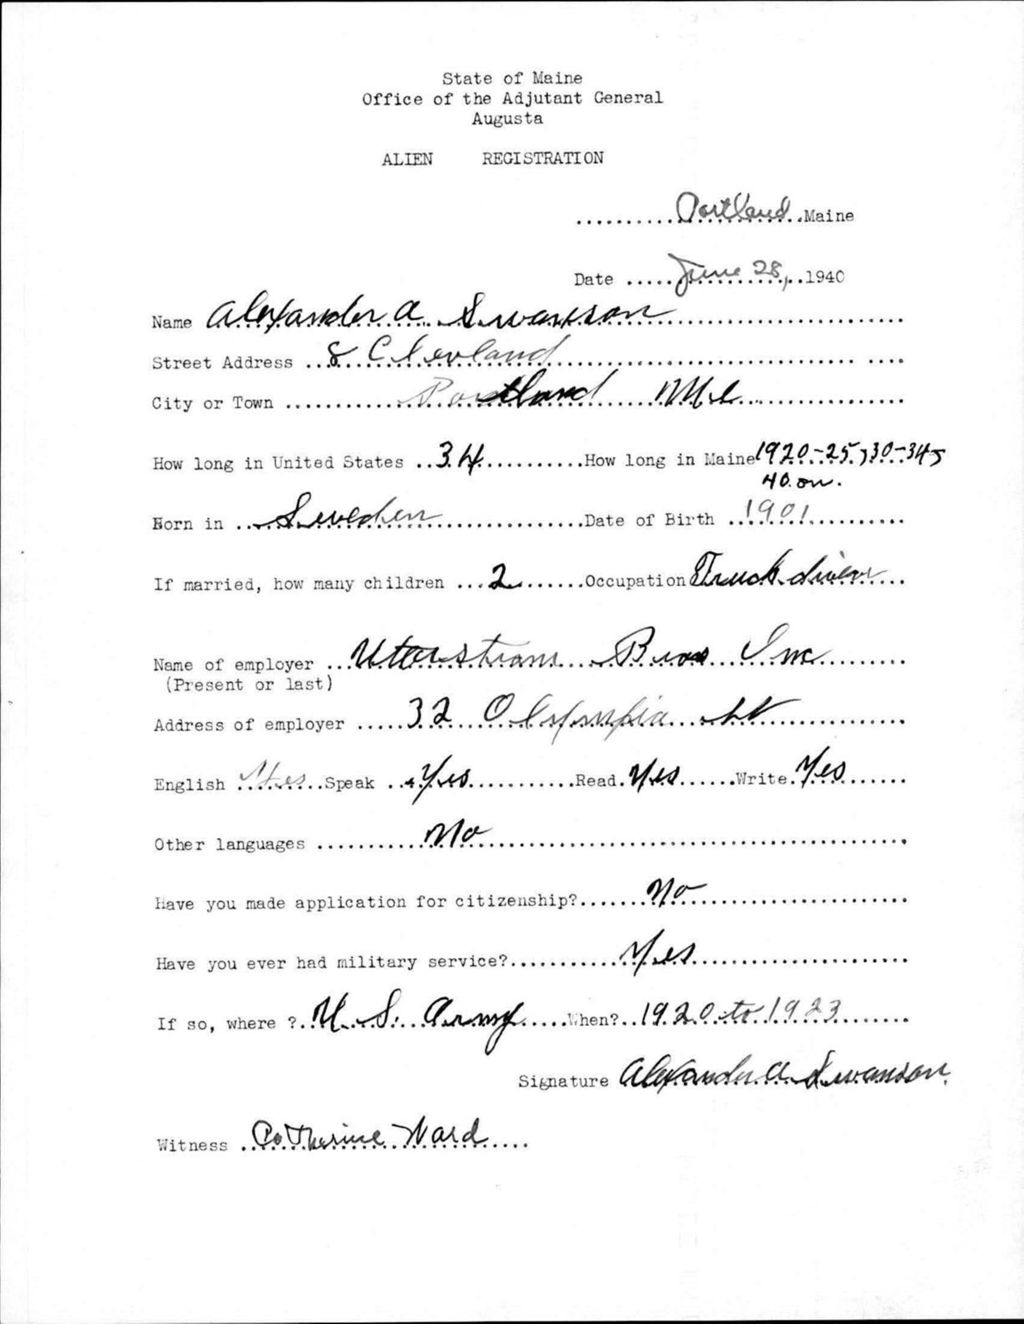 State of Maine
Office of the Adjutant General
Augusta
ALIEN REGISTRATION
..........Portland..Maine
Date .....June 28,..1940
Name Alexander A Swanson
Street Address ..8 Cleveland
City or Town ..........Portland Me
How long in United States ..34..........How long in Maine 1920-25,30-345
40 on.
Born in ..Sweden..............Date of Birth ..1901..........
If married, how many children ...2.......Occupation Truck driver
Name of employer ... Bros Inc
(Present or last)
Address of employer .....32 Olympia st
English Yes...Speak ..Yes...........Read.Yes......Write.Yes......
Other languages ..........No
Have you made application for citizenship?.......No
Have you ever had military service?...........Yes
If so, where ?.U.S. Army.....When?..1920 to 1923
Signature Alexander A Swanson.
Witness ..Catherine Ward....